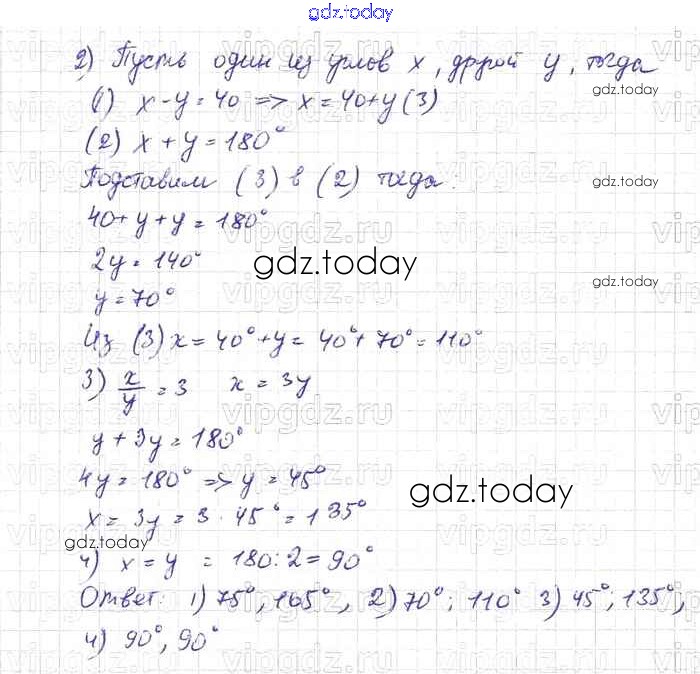 gdz.today
2) Пусть один из углов x, другой y, тогда
(1) x-y=40 => x=40+y (3)
(2) x+y=180°
gdz.today
Подставим (3) в (2) тогда:
40+y+y=180°
2y=140°
gdz.today
gdz.today
y=70°
Из (3) x=40°+y=40°+70°=110°
3) x/y=3 x=3y
y+3y=180°
4y=180° => y=45°
gdz.today
x=3y=3·45°=135°
gdz.today
4) x=y =180:2=90°
Ответ: 1) 75°, 105°, 2) 70°; 110° 3) 45°; 135°,
4) 90°, 90°